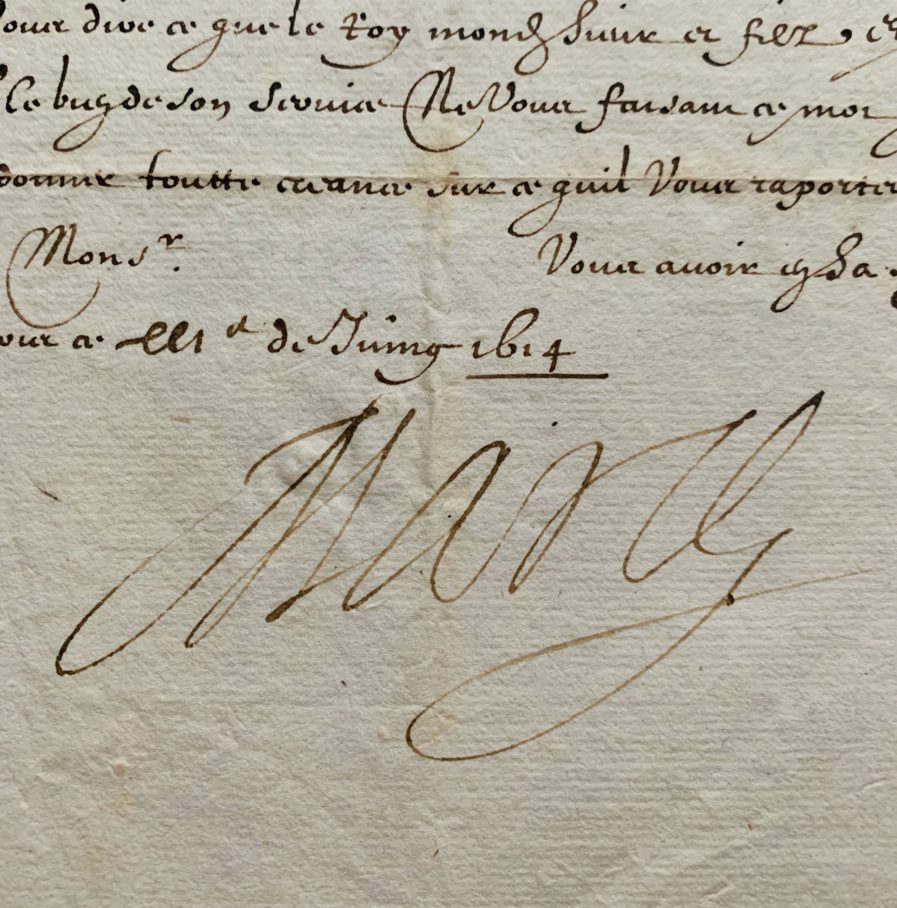 vous dire ce que le Roy mond Sieur et filz, et
le bien de son service Ne Vous faisant ce mot
donner toutte creance sur ce quil Vous raporter
Monsr. Vous avoir en sa
jour de Juing 1614
Marie